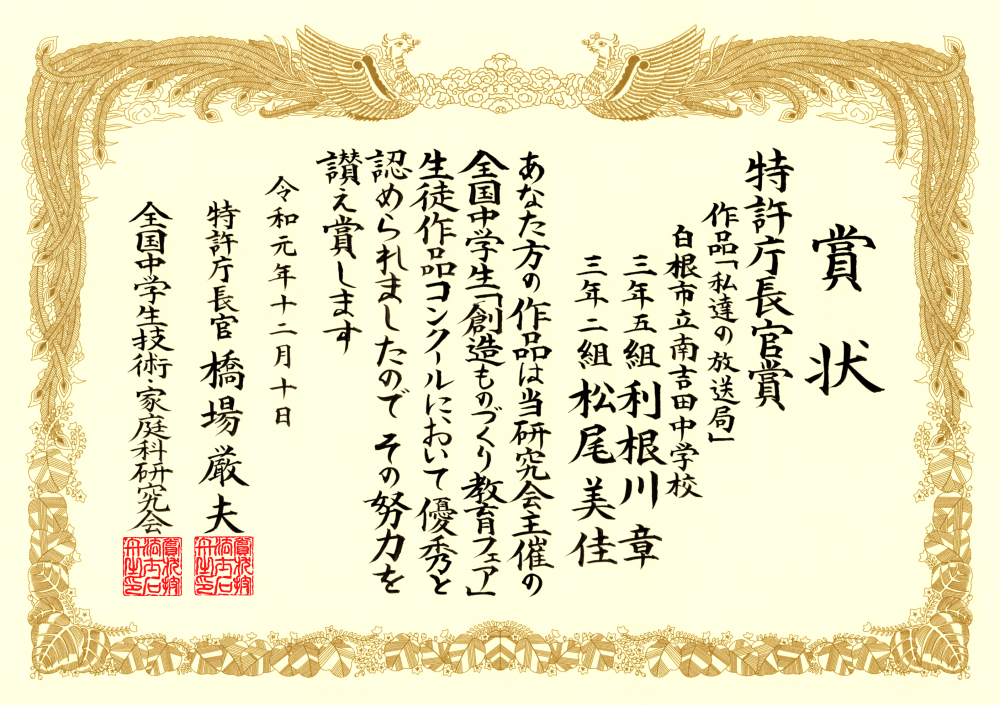 賞状
特許庁長官賞
作品「私達の放送局」
白根市立南吉田中学校
三年五組 利根川章
三年二組 松尾美佳
あなた方の作品は当研究会主催の
全国中学生「創造ものづくり教育フェア」
生徒作品コンクールにおいて優秀と
認められましたので その努力を
讃え賞します
令和元年十二月十日
特許庁長官 橋場厳夫
全国中学生技術・家庭科研究会